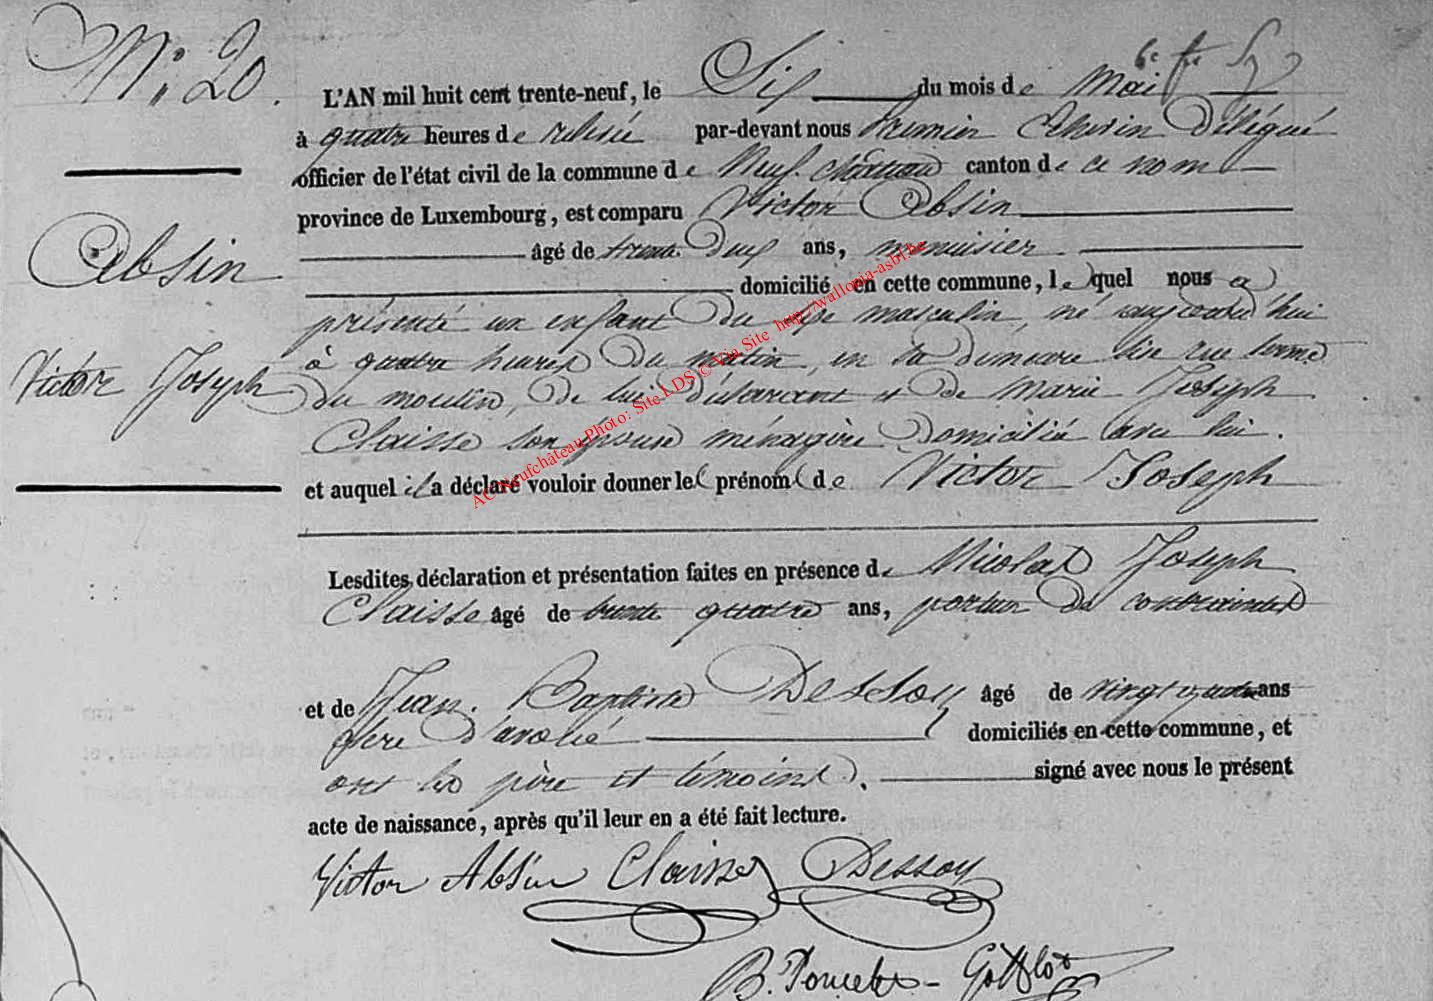 N° 20.
Absin
Victor Joseph
L'AN mil huit cent trente-neuf, le Six du mois de Mai
à quatre heures de relevée par-devant nous Premier Echevin Délégué
officier de l'état civil de la commune de Neufchateau canton de ce nom
province de Luxembourg, est comparu Victor Absin
âgé de trente Deux ans, menuisier
domicilié en cette commune, lequel nous a
présenté un enfant Du sexe masculin, né aujourd'hui
à quatre heures Du matin, en sa demeure sise rue
Du moulin, De lui déclarant et De Marie Joseph
Claisse son épouse ménagère Domiciliée avec lui.
et auquel il a déclaré vouloir donner les prénoms de Victor Joseph
Lesdites déclaration et présentation faites en présence de Nicolas Joseph
Claisse âgé de trente quatre ans, porteur De contraintes
et de Jean Baptiste Dessoy âgé de vingt quatre ans
domiciliés en cette commune, et
ont les père et témoins. signé avec nous le présent
acte de naissance, après qu'il leur en a été fait lecture.
Victor Absin Claisse Dessoy
AC Neufchâteau Photo: Site LDS © Via Site http://wallonia-asbl.be